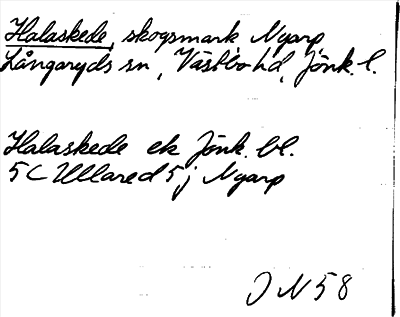 Halaskede, skogsmark Nyarp
Långaryds sn, Västbo hd, Jönk. l.
Halaskede ek Jönk. bl.
5C Ullared 5j Nyarp
J N 58